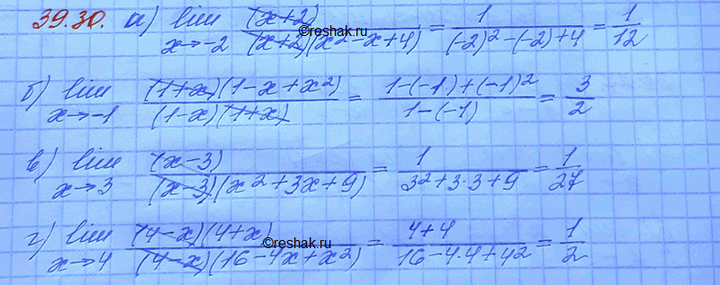 39.30. а) lim x→-2 (x+2) / (x+2)(x²-x+4) = 1 / (-2)²-(-2)+4 = 1/12
reshak.ru
б) lim x→-1 (1+x)(1-x+x²) / (1-x)(1+x) = 1-(-1)+(-1)² / 1-(-1) = 3/2
в) lim x→3 (x-3) / (x-3)(x²+3x+9) = 1 / 3²+3·3+9 = 1/27
г) lim x→4 (4-x)(4+x) / (4-x)(16-4x+x²) = 4+4 / 16-4·4+4² = 1/2
reshak.ru